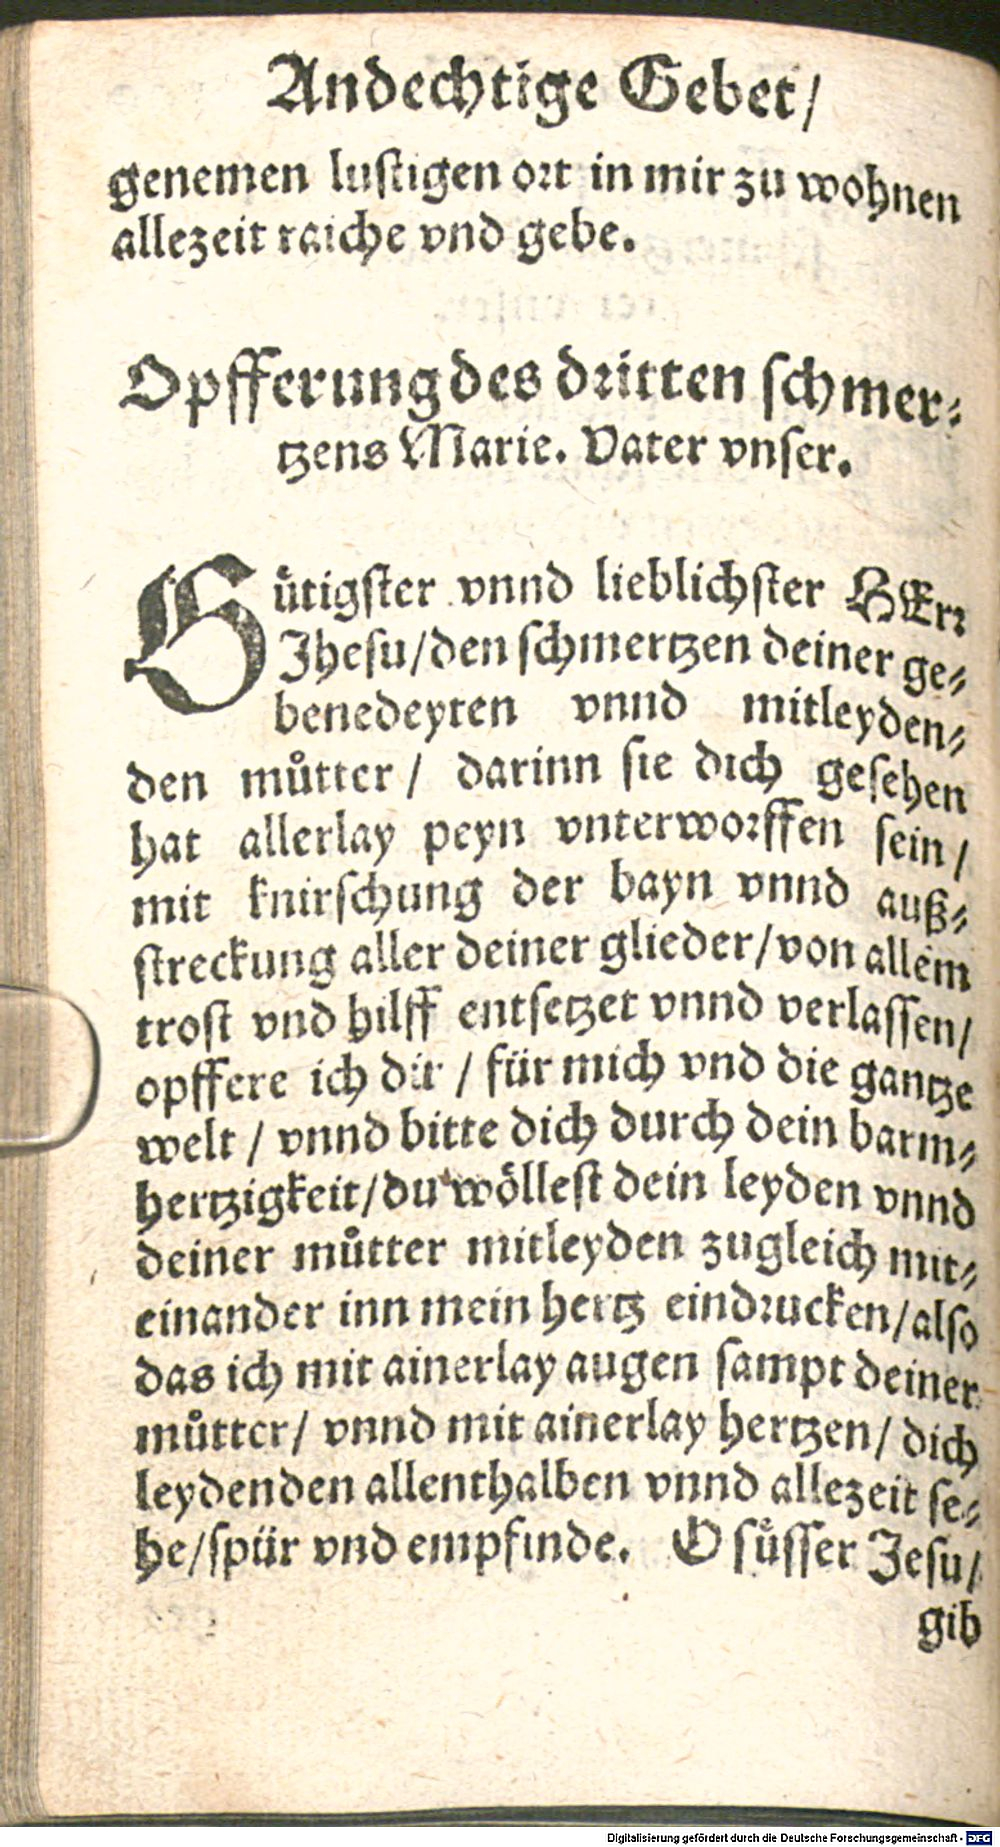 Andechtige Gebet/
genemen lustigen ort in mir zu wohnen
allezeit raiche vnd gebe.
Opfferung des dritten schmer-
tzens Marie. Vater vnser.
Gütigster vnnd lieblichster HErr
Jhesu/den schmertzen deiner ge-
benedeyten vnnd mitleyden-
den můtter/ darinn sie dich gesehen
hat allerlay peyn vnterworffen sein/
mit knirschung der bayn vnnd auß-
streckung aller deiner glieder/von allem
trost vnd hilff entsetzet vnnd verlassen/
opffere ich dir / für mich vnd die gantze
welt / vnnd bitte dich durch dein barm-
hertzigkeit/du wöllest dein leyden vnnd
deiner můtter mitleyden zugleich mit-
einander inn mein hertz eindrucken/also
das ich mit ainerlay augen sampt deiner
můtter/ vnnd mit ainerlay hertzen/ dich
leydenden allenthalben vnnd allezeit se-
he/spür vnd empfinde. O süsser Jesu/
gib
Digitalisierung gefördert durch die Deutsche Forschungsgemeinschaft - DFG